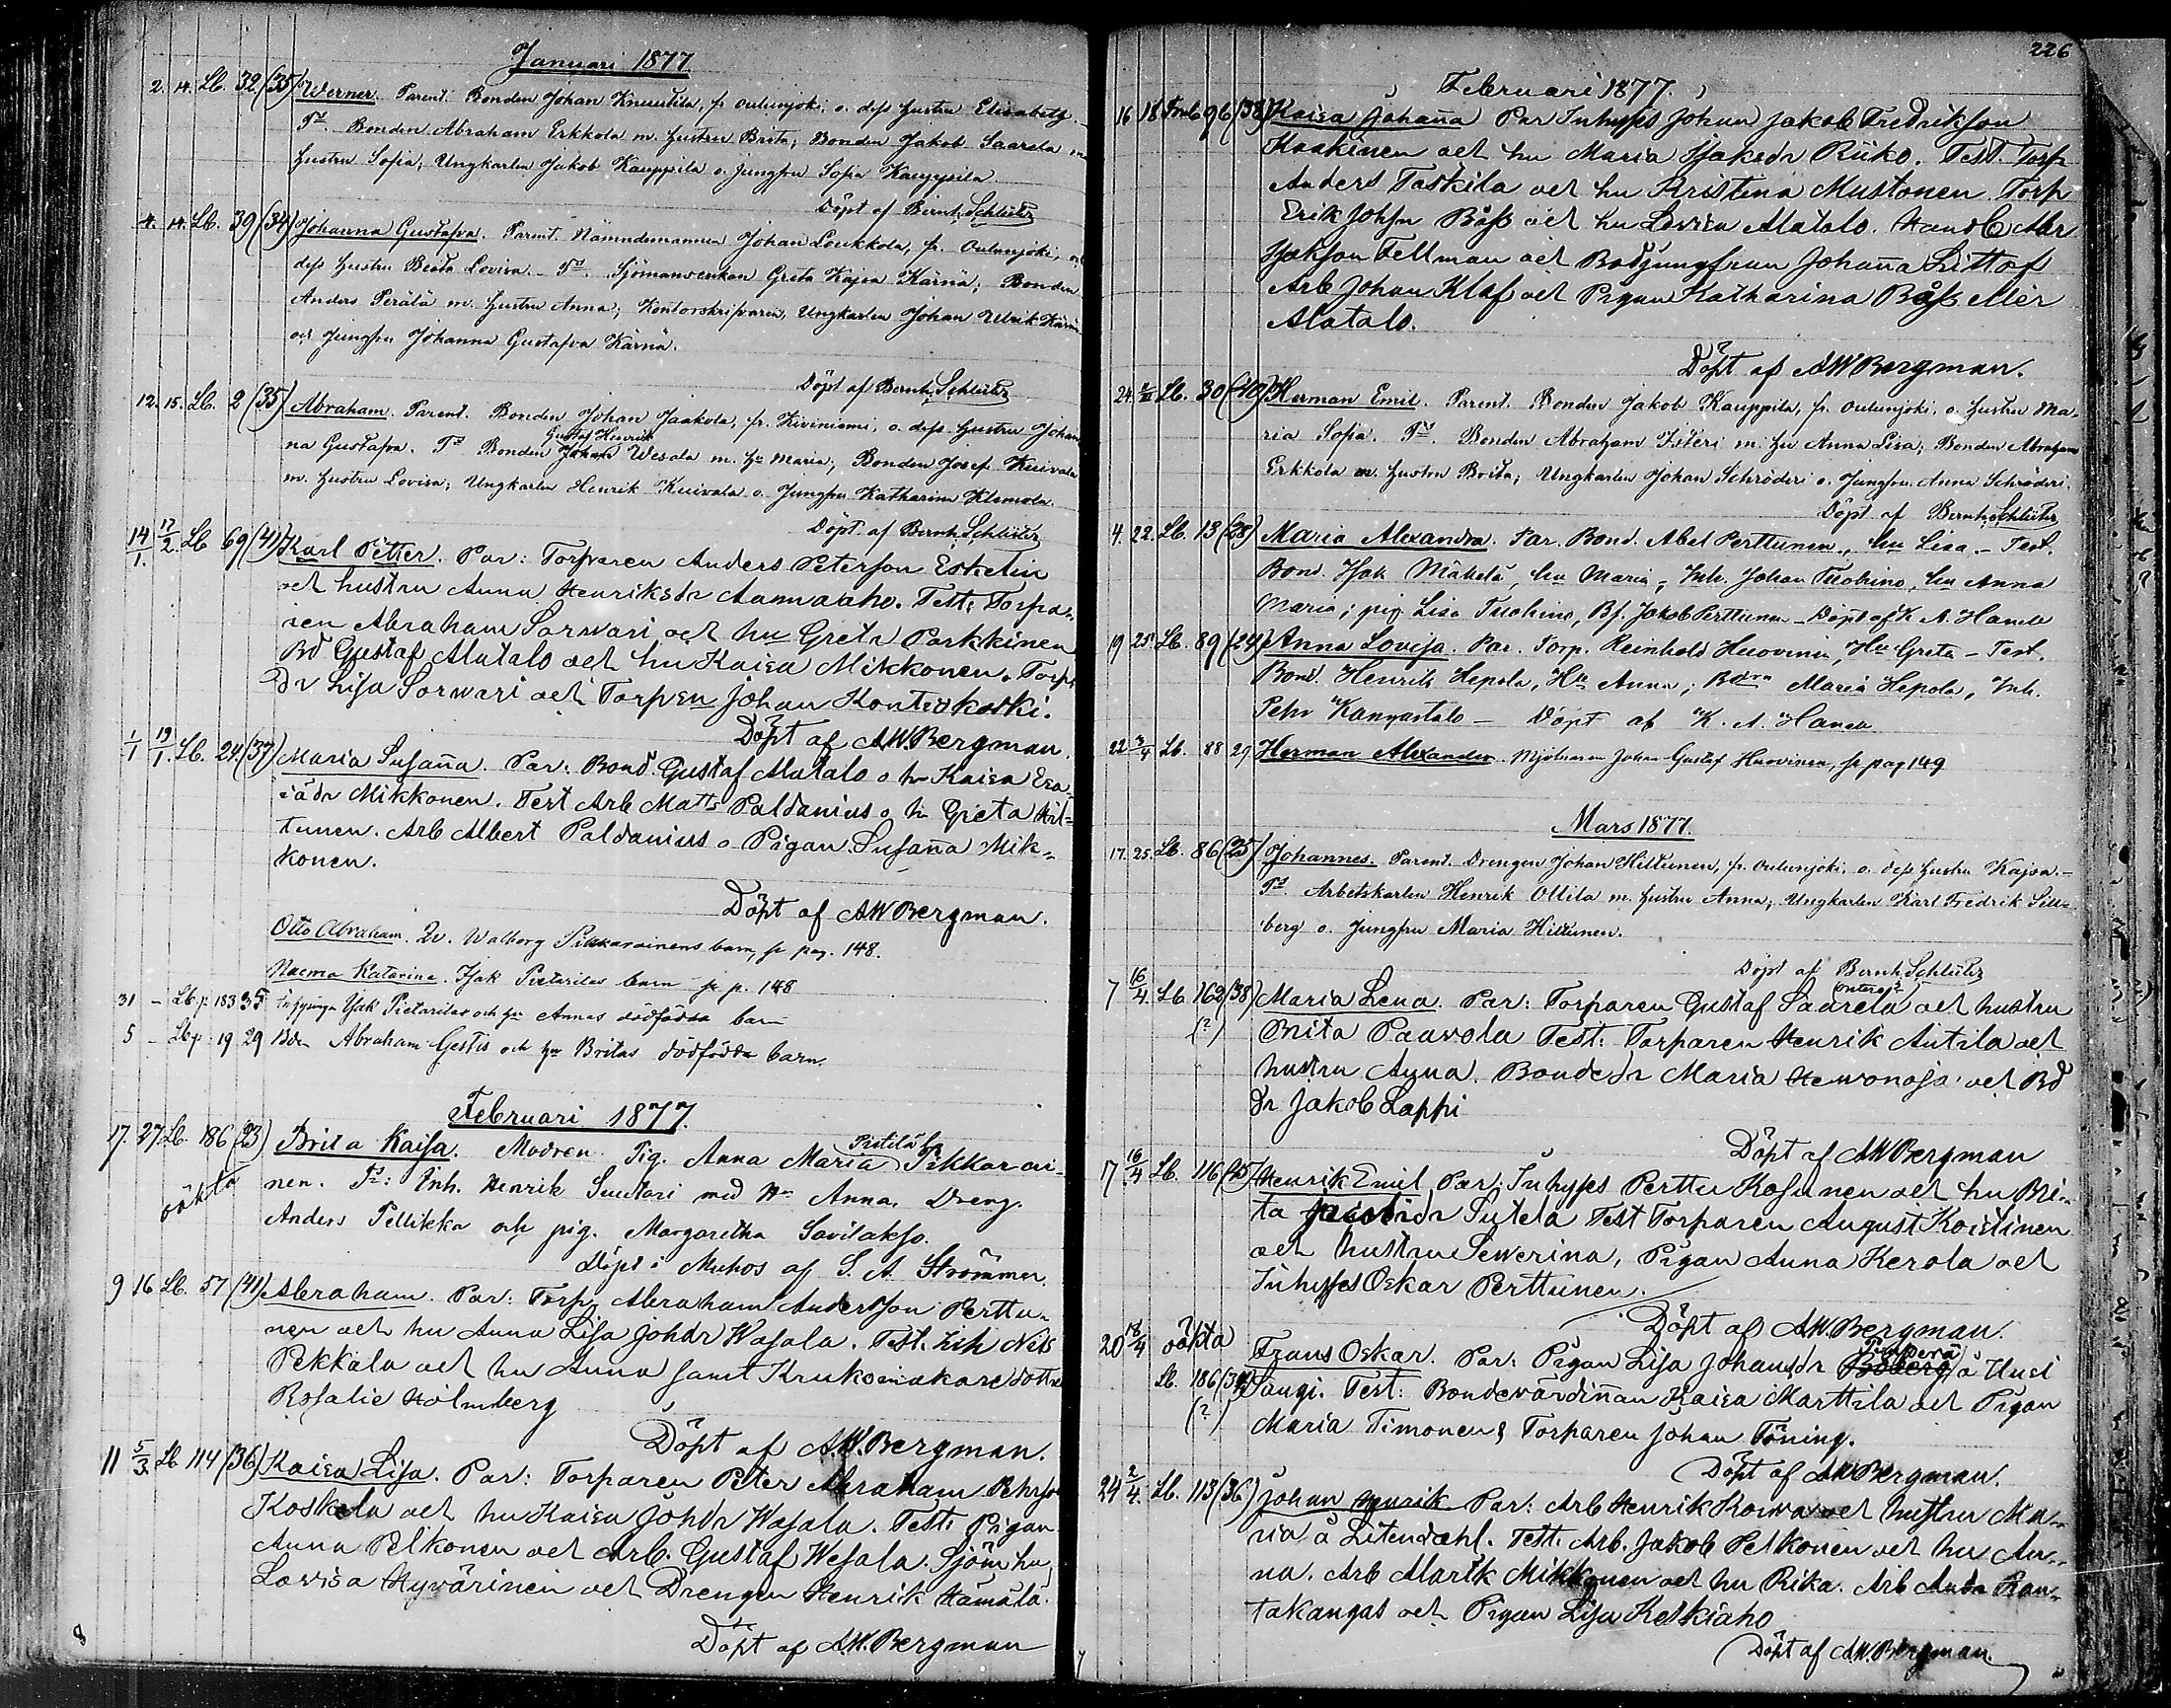 Januari 1877
2. 14. Lb. 32 (35) Werner. Parent. Bonden Johan Knuutila, fr. Oulunjoki o. dess hustru Elisabeth.
Ts. Bonden Abraham Erkkola m. hustru Brita; Bonden Jakob Saarela m.
hustru Sofia; Ungkarlen Jakob Kauppila o. jungfru Sofia Kauppila
Döpt af Bernh. Schlüter
4. 14. Lb. 39 (34) Johanna Gustafva. Parent. Nämndemannen Johan Loukkola, fr. Oulunjoki, o.
dess hustru Beata Lovisa. - Ts. Sjömansenkan Greta Kajsa Kärnä; Bonden
Anders Perälä m. hustru Anna; Kontorskrifvaren, Ungkarlen Johan Ulrik Kärnä
och jungfru Johanna Gustafva Kärnä.
Döpt af Bernh. Schlüter
12. 15. Lb. 2 (35) Abraham. Parent. Bonden Johan Jaakola, fr. Kiviniemi, o. dess hustru Johan
na Gustafva. Ts Bonden Johan Gustaf Henrik Wesala m. hu Maria; Bonden Josef Kuivala
m. hustru Lovisa; Ungkarlen Henrik Kuivala o. Jungfru Katharina Klemola.
Döpt af Bernh. Schlüter
14/1. 17/2. Lb 69 (41) Karl Petter. Par: Torparen Anders Peterson Eskelin
och hustru Anna Henriksdr Aamuaho. Test: Torpa-
ren Abraham Sorwari och hu Greta Parkkinen
Bd Gustaf Alatalo och hu Kaisa Mikkonen. Torps
Dr Lisa Sorwari och Torpsen Johan Konttoskoski.
Döpt af AW. Bergman.
1/1 19/1. Lb. 24. (37) Maria Susaña. Par: Bond. Gustaf Alatalo o hu Kaisa Esa-
iädr Mikkonen. Test Arb Matts Paldanius o h. Greta Hil-
tunen. Arb Albert Paldanius o Pigan Susaña Mik-
konen.
Döpt af AW Bergman.
Otto Abraham. Qv. Walborg Pikkarainens barn, se pag. 148.
Naema Katarina. Isak Pietarilas barn se p. 148
31 - Lb p. 183 35 Inhysinge Isak Pietarilas och hu Annas dödfödda barn
5 - Lb p. 19 29 Bdn Abraham Gestis och hu Britas dödfödda barn.
Februari 1877.
17. 27 Lb. 186 (23) Brita Kaisa. Modren Pig. Anna Maria Pikkarai-
oäkta nen. Ts: Inh. Henrik Suutari med Hu Anna. Dreng.
Anders Pellikka och pig. Margaretha Savilakso.
Döpt i Muhos af S. A. Strömmer.
9 16 Lb. 57 (41) Abraham. Par: Torp. Abraham Andersson Perttu-
nen och hu Anna Lisa Johdr Wasala. Test. Inh Nils
Pekkala och hu Anna samt Krukomakaredottren
Rosalie Holmberg
Döpt af A.W. Bergman.
11 5/3. Lb 114 (36) Kaisa Lisa. Par: Torparen Peter Abraham Pehrson
Koskela och hu Kaisa Johdr Wasala. Test: Pigan
Anna Pelkonen och Arb. Gustaf Wesala. Sjöm hu
Lovisa Hyvärinen och Drengen Henrik Hämälä.
Döpt af A.W. Bergman
8
226
Februari 1877.
16 18 Lb 96 (38) Kaisa Johaña Par Inhyses Johan Jakob Fredrikson
Kaakinen och hu Maria Isaksdr Riiko. Test. Torp
Anders Taskila och hu Kristina Mustonen Torp
Erik Johsn Båss och hu Lovisa Alatalo. Handl Abr
Isakson Fellman och Bodjungfrun Johaña Littof
Arb Johan Klaf och Pigan Katharina Båss eller
Alatalo.
Döpt af AW Bergman.
24. Lb. 30 (40) Herman Emil. Parent. Bonden Jakob Kauppila, fr. Oulunjoki, o. hustru Ma-
ria Sofia. Ts. Bonden Abraham Isteri m. hu Anna Lisa; Bonden Abraham
Erkkola m. hustru Brita; Ungkarlen Johan Schröderi o. Jungfru Anna Schröderi.
Döpt af Bernh. Schlüter
4. 22. Lb. 13 (28) Maria Alexandra. Par. Bond. Abel Perttunen, hu Lisa. - Test.
Bond. Isak Mäkelä, hu Maria; Inh. Johan Tuohino, hu Anna
Maria; pig. Lisa Tuohino, Bs. Jakob Perttunen - Döpt af K. A. Hanell
19 25. Lb. 89 (24) Anna Lovisa. Par. Torp. Reinhold Huovinen, Hu Greta - Test.
Bond. Henrik Hepola, Hu Anna; Bdrn Maria Hepola, Inh.
Pehr Kangastalo - Döpt af K. A. Hanell
22 3/4 Lb. 88 29 Herman Alexander. Mjölnaren Johan Gustaf Huovinen, se pag 149
Mars 1877.
17. 25. Lb. 86 (25) Johannes. Parent. Drengen Johan Hiltunen, fr. Oulunjoki. o. dess hustru Kajsa. -
Ts. Arbetskarlen Henrik Ollila m. hustru Anna; Ungkarlen Karl Fredrik
berg o. Jungfru Maria Hiltunen.
Döpt af Bernh. Schlüter
7 16/4 Lb. 162 (38) (?) Maria Lena. Par: Torparen Gustaf Saarela och hustru
Brita Paavola Test: Torparen Henrik Antila och
hustru Anna. Bondedr Maria och Bd
Dr Jakob Lappi
Döpt af AW Bergman
17 16/4 Lb. 116 (45) Henrik Emil Par: Inhyses Perttu Kosunen och hu Bri-
ta Jacobsdr Sutela Test Torparen August Koistinen
och hustru Sewerina, Pigan Anna Kerola och
Inhyses Oskar Perttunen.
Döpt af AW. Bergman.
20 18/4 oäkta Frans Oskar. Par: Pigan Lisa Johansdr Boberg å Uusi
Lb. 186 (?) Sangi. Test: Bondevärdiñan Kaisa Marttila och Pigan
Maria Timonen & Torparen Johan Töning.
Döpt af AW Bergman.
24 2/4. Lb. 113 (36) Johan Henrik Par: Arb Henrik Koiva och hustru Ma-
ria å Litendahl. Test. Arb. Jakob Pelkonen och hu An-
na. Arb Alarik Mikkonen och hu Rika. Arb Ran-
takangas och Pigan Lisa Keskiaho
Döpt af AW. Bergman.